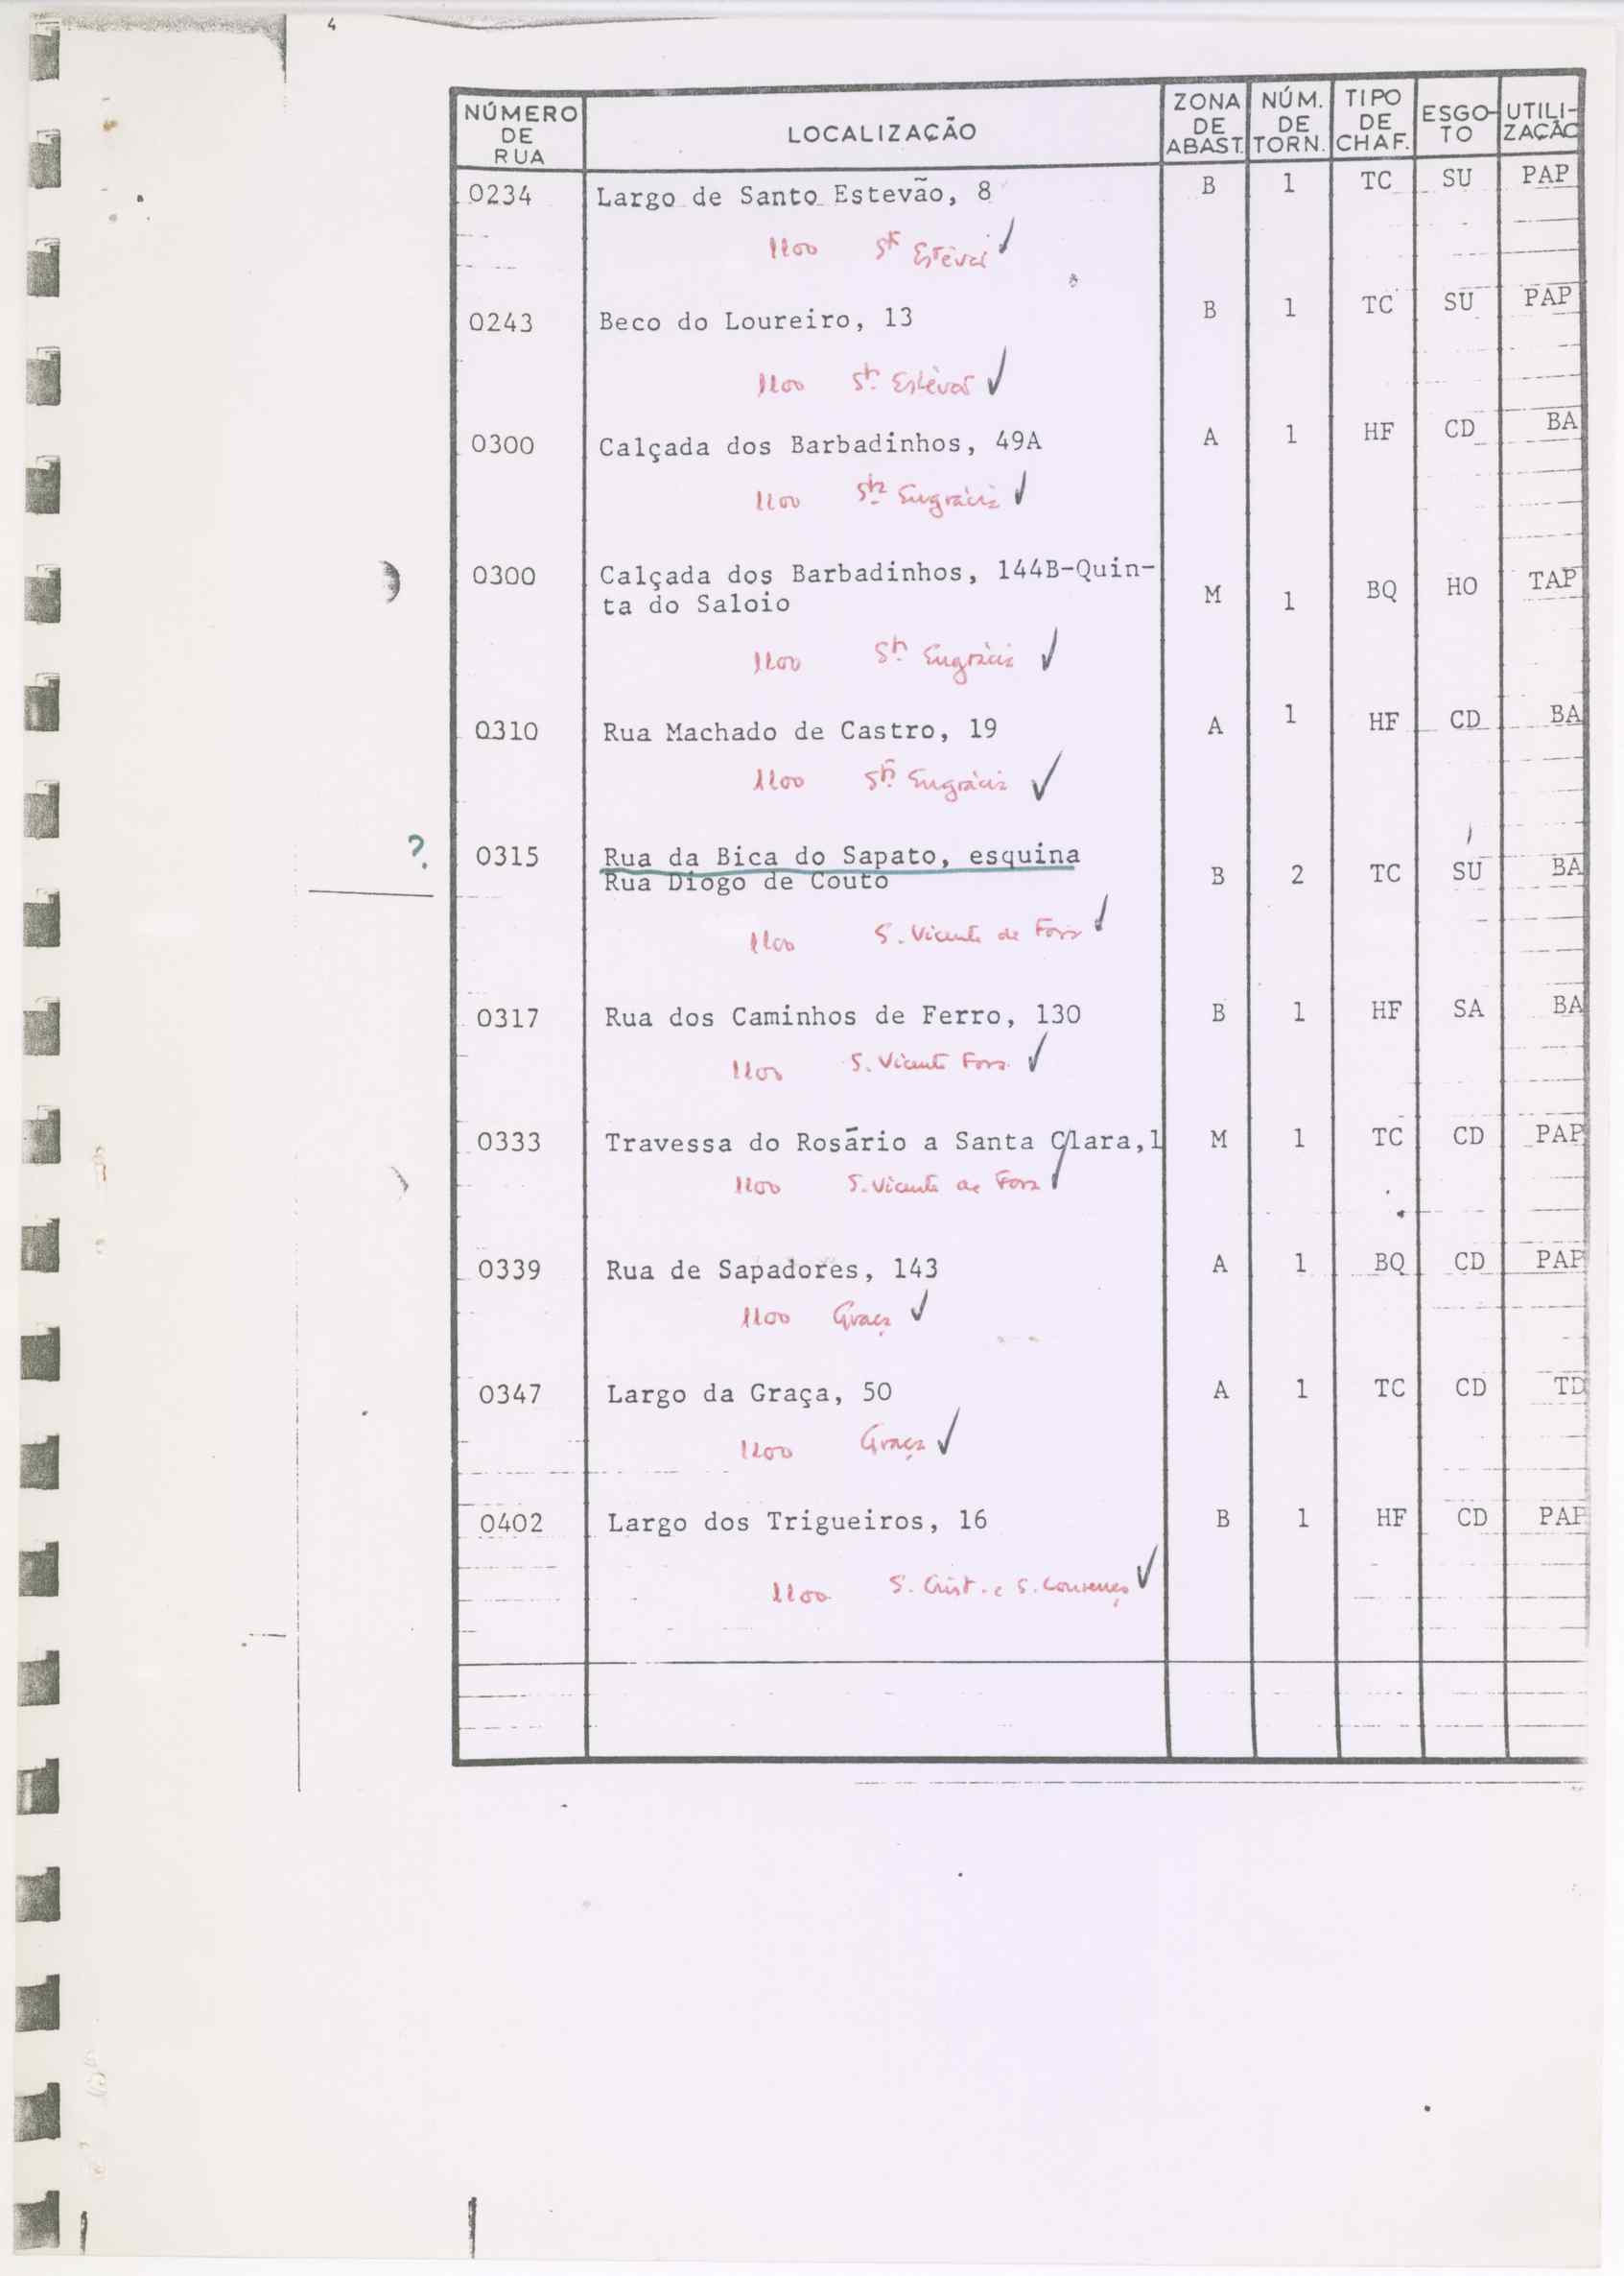 4
NÚMERO DE RUA | LOCALIZAÇÃO | ZONA DE ABAST. | NÚM. DE TORN. | TIPO DE CHAF. | ESGO-TO | UTILI-ZAÇÃO
0234 Largo de Santo Estevão, 8 B 1 TC SU PAP
1100 Stº Estêvão ✓
0243 Beco do Loureiro, 13 B 1 TC SU PAP
1100 Stº Estêvão ✓
0300 Calçada dos Barbadinhos, 49A A 1 HF CD BA
1100 Stª Engrácia ✓
0300 Calçada dos Barbadinhos, 144B-Quin-
ta do Saloio M 1 BQ HO TAP
1100 Stª Engrácia ✓
0310 Rua Machado de Castro, 19 A 1 HF CD BA
1100 Stª Engrácia ✓
? 0315 Rua da Bica do Sapato, esquina
Rua Diogo de Couto B 2 TC SU BA
1100 S. Vicente de Fora ✓
0317 Rua dos Caminhos de Ferro, 130 B 1 HF SA BA
1100 S. Vicente Fora ✓
0333 Travessa do Rosário a Santa Clara,1 M 1 TC CD PAP
1100 S. Vicente de Fora ✓
0339 Rua de Sapadores, 143 A 1 BQ CD PAP
1100 Graça ✓
0347 Largo da Graça, 50 A 1 TC CD TD
1100 Graça ✓
0402 Largo dos Trigueiros, 16 B 1 HF CD PAP
1100 S. Crist. e S. Lourenço ✓